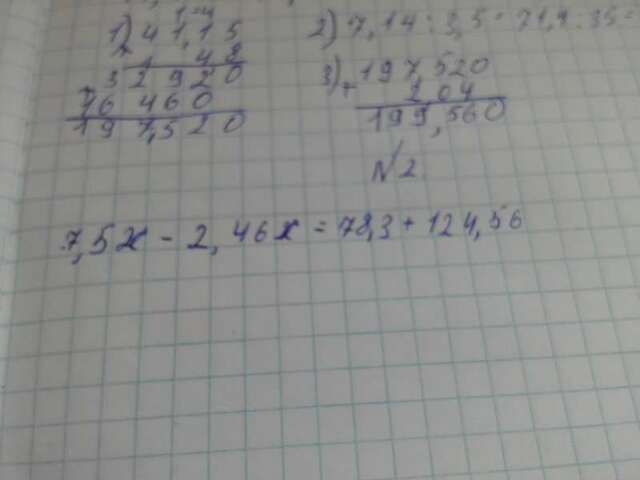 1) 41,15
× 4,8
32920
16460
197,520
2) 7,14 : 3,5 = 71,4 : 35 =
3) + 197,520
2,04
199,560
N2.
7,5x - 2,46x = 78,3 + 124,56